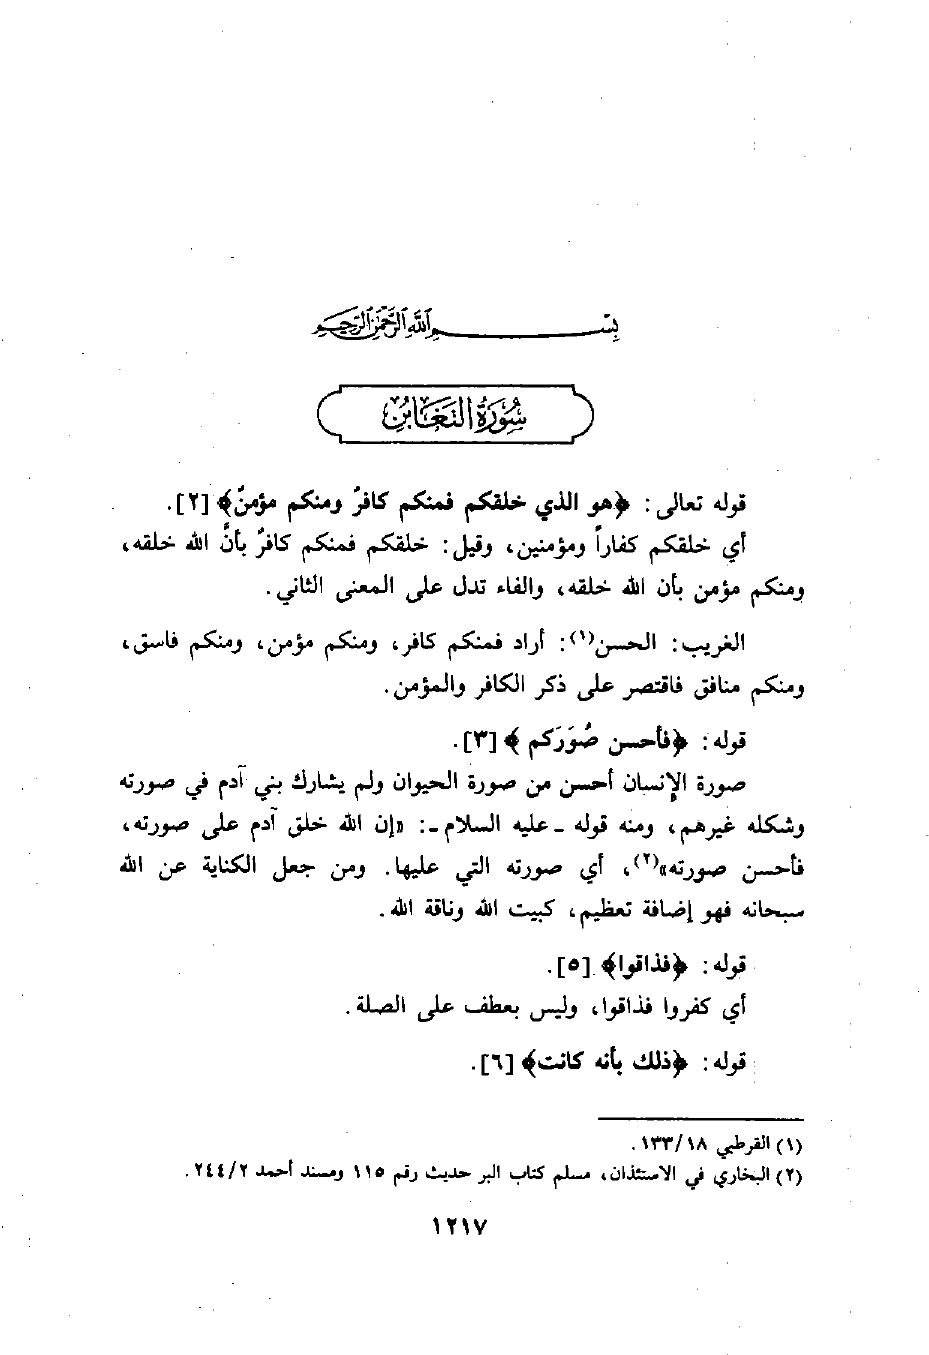 بسم الله الرحمن الرحيم
سورة التغابن
قوله تعالى: ﴿هو الذي خلقكم فمنكم كافرٌ ومنكم مؤمنٌ﴾ [٢].
أي خلقكم كفاراً ومؤمنين، وقيل: خلقكم فمنكم كافرٌ بأنَّ الله خلقه،
ومنكم مؤمن بأن الله خلقه، والفاء تدل على المعنى الثاني.
الغريب: الحسن(١): أراد فمنكم كافر، ومنكم مؤمن، ومنكم فاسق،
ومنكم منافق فاقتصر على ذكر الكافر والمؤمن.
قوله: ﴿فأحسن صُوَرَكم﴾ [٣].
صورة الإنسان أحسن من صورة الحيوان ولم يشارك بني آدم في صورته
وشكله غيرهم، ومنه قوله ـ عليه السلام ـ: «إن الله خلق آدم على صورته،
فأحسن صورته»(٢)، أي صورته التي عليها. ومن جعل الكناية عن الله
سبحانه فهو إضافة تعظيم، كبيت الله وناقة الله.
قوله: ﴿فذاقوا﴾ [٥].
أي كفروا فذاقوا، وليس بعطف على الصلة.
قوله: ﴿ذلك بأنه كانت﴾ [٦].
(١) القرطبي ١٣٣/١٨.
(٢) البخاري في الاستئذان، مسلم كتاب البر حديث رقم ١١٥ ومسند أحمد ٢٤٤/٢.
١٢١٧